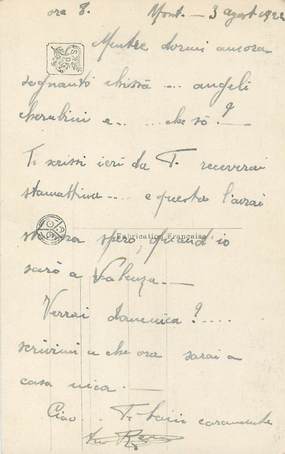 ore 8. Mont. — 3 agost 1922
Mentre dormi ancora
sognando chissà ... angeli
cherubini e ... che so? —
Ti scrissi ieri da T. riceverai
stamattina .... e questa l'avrai
stasera spero, quand'io
Fabrication Française
sarò a Valenza. —
Verrai domenica? ....
scrivimi a che ora sarai a
casa mica. —
Ciao. Ti bacio caramente